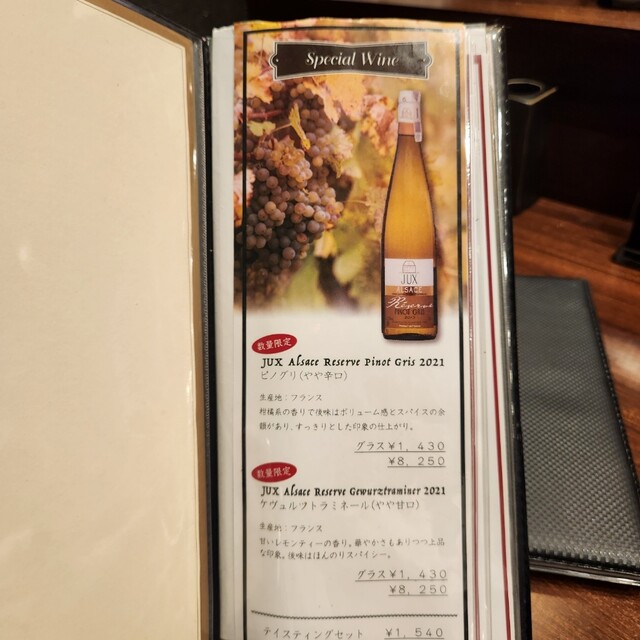 Special Wine
JUX
ALSACE
Réserve
PINOT GRIS
数量限定
JUX Alsace Reserve Pinot Gris 2021
ピノグリ(やや辛口)
生産地：フランス
柑橘系の香りで後味はボリューム感とスパイスの余
韻があり、すっきりとした印象の仕上がり。
グラス¥1,430
¥8,250
数量限定
JUX Alsace Reserve Gewurztraminer 2021
ゲヴュルフトラミネール(やや甘口)
生産地：フランス
甘いレモンティーの香り。華やかさもありつつ上品
な印象。後味はほんのりスパイシー。
グラス¥1,430
¥8,250
テイスティングセット ¥1,540